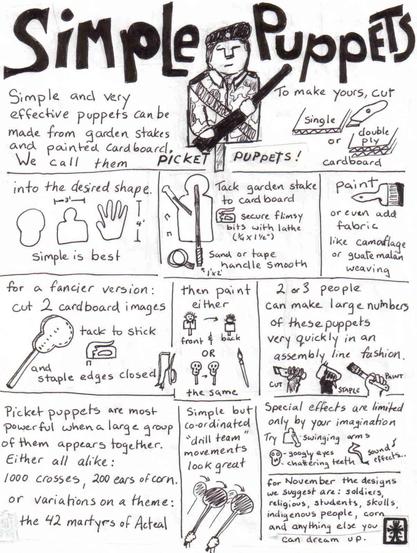 Simple Puppets
Simple and very
effective puppets can be
made from garden stakes
and painted cardboard.
We call them
PICKET PUPPETS!
To make yours, cut
single
or
double
ply
cardboard
into the desired shape.
3'
4'
simple is best
Tack garden stake
to cardboard
secure flimsy
bits with lathe
(¼ x 1½")
Sand or tape
handle smooth
1"x2"
paint
or even add
fabric
like camoflage
or guatemalan
weaving
for a fancier version:
cut 2 cardboard images
tack to stick
and
staple edges closed
then paint
either
front & back
OR
the same
2 or 3 people
can make large numbers
of these puppets
very quickly in an
assembly line fashion.
CUT
STAPLE
PAINT
Picket puppets are most
powerful when a large group
of them appears together.
Either all alike:
1000 crosses, 200 ears of corn.
or variations on a theme:
the 42 martyrs of Acteal
Simple but
co-ordinated
"drill team"
movements
look great
Special effects are limited
only by your imagination
Try swinging arms
-googly eyes
-chattering teeth
sound
effects...
for November the designs
we suggest are: soldiers,
religious, students, skulls,
indigenous people, corn
and anything else you
can dream up.